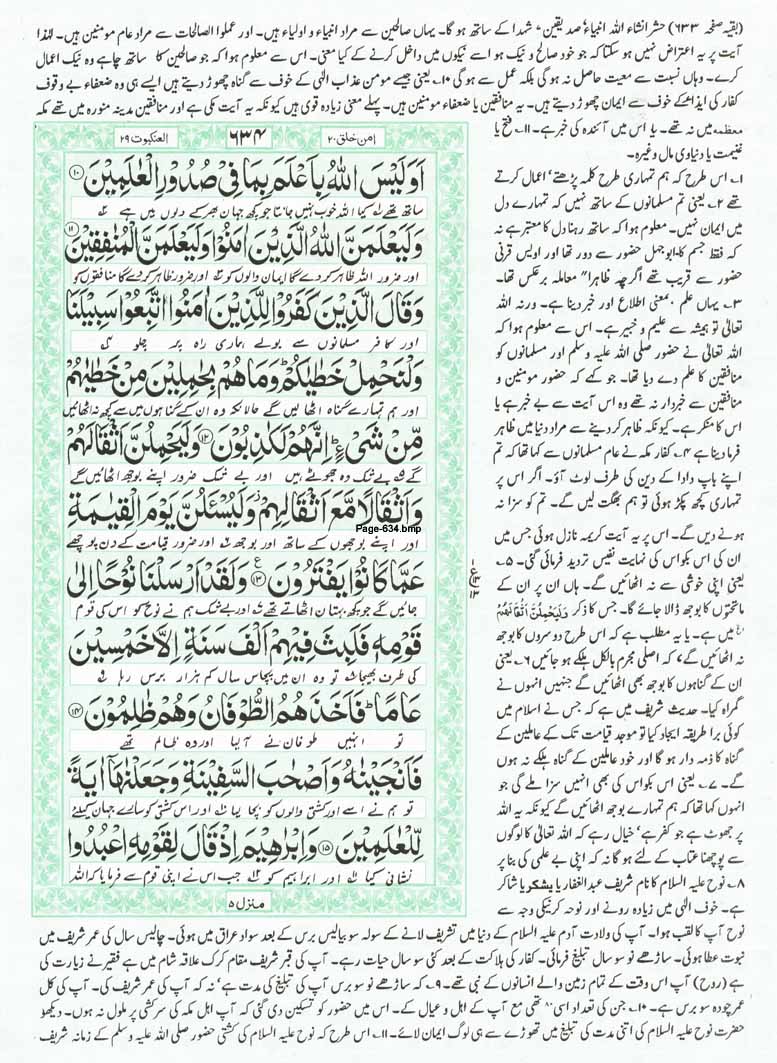 (بقیہ صفحہ ۶۳۳) حشر انشاء اللہ انبیاء، صدیقین، شہدا کے ساتھ ہو گا۔ یہاں صالحین سے مراد انبیاء و اولیاء ہیں۔ اور عملوا الصالحات سے مراد عام مومنین ہیں۔ لہٰذا
آیت پر یہ اعتراض نہیں ہو سکتا کہ جو خود صالح و نیک ہو اسے نیکوں میں داخل کرنے کے کیا معنی۔ اس سے معلوم ہوا کہ جو صالحین کا ساتھ چاہے وہ نیک اعمال
کرے۔ وہاں نسبت سے معیت حاصل نہ ہوگی بلکہ عمل سے ہو گی ۱۰۔ یعنی جیسے مومن عذاب الٰہی کے خوف سے گناہ چھوڑ دیتے ہیں ایسے ہی وہ ضعفاء بے وقوف
کفار کی ایذا کے خوف سے ایمان چھوڑ دیتے ہیں۔ یہ منافقین یا ضعفاء مومنین ہیں۔ پہلے معنی زیادہ قوی ہیں کیونکہ یہ آیت مکی ہے اور منافقین مدینہ منورہ میں تھے مکہ
معظمہ میں نہ تھے۔ یا اس میں آئندہ کی خبر ہے۔ ۱۱۔ فتح یا
غنیمت یا دنیاوی مال وغیرہ۔
العنکبوت ۲۹
۶۳۴
امن خلق ۲۰
اَوَلَيْسَ اللّٰهُ بِاَعْلَمَ بِمَا فِيْ صُدُوْرِ الْعٰلَمِيْنَ ۱۰
ساتھ تھے کیا اللہ خوب نہیں جانتا جو کچھ جہان بھر کے دلوں میں ہے
وَلَيَعْلَمَنَّ اللّٰهُ الَّذِيْنَ اٰمَنُوْا وَلَيَعْلَمَنَّ الْمُنٰفِقِيْنَ ۱۱
اور ضرور اللہ ظاہر کر دے گا ایمان والوں کو اور ضرور ظاہر کر دے گا منافقوں کو
وَقَالَ الَّذِيْنَ كَفَرُوْا لِلَّذِيْنَ اٰمَنُوا اتَّبِعُوْا سَبِيْلَنَا
اور کافر مسلمانوں سے بولے ہماری راہ پر چلو
وَلْنَحْمِلْ خَطٰيٰكُمْ ؕ وَمَا هُمْ بِحٰمِلِيْنَ مِنْ خَطٰيٰهُمْ
اور ہم تمہارے گناہ اٹھا لیں گے حالانکہ وہ ان کے گناہوں میں سے کچھ نہ اٹھائیں
مِّنْ شَيْءٍ ؕ اِنَّهُمْ لَكٰذِبُوْنَ ۱۲ وَلَيَحْمِلُنَّ اَثْقَالَهُمْ
گے بے شک وہ جھوٹے ہیں اور بے شک ضرور اپنے بوجھ اٹھائیں گے
وَاَثْقَالًا مَّعَ اَثْقَالِهِمْ ؗ وَلَيُسْـَٔلُنَّ يَوْمَ الْقِيٰمَةِ
Page-634.bmp
اور اپنے بوجھوں کے ساتھ اور بوجھ اور ضرور قیامت کے دن پوچھے
عَمَّا كَانُوْا يَفْتَرُوْنَ ۱۳ وَلَقَدْ اَرْسَلْنَا نُوْحًا اِلٰى
جائیں گے جو کچھ بہتان اٹھاتے تھے اور بے شک ہم نے نوح کو اس کی قوم
قَوْمِهٖ فَلَبِثَ فِيْهِمْ اَلْفَ سَنَةٍ اِلَّا خَمْسِيْنَ
کی طرف بھیجا تو وہ ان میں پچاس سال کم ہزار برس رہا
عَامًا ؕ فَاَخَذَهُمُ الطُّوْفَانُ وَهُمْ ظٰلِمُوْنَ ۱۴
تو انہیں طوفان نے آلیا اور وہ ظالم تھے
فَاَنْجَيْنٰهُ وَاَصْحٰبَ السَّفِيْنَةِ وَجَعَلْنٰهَاۤ اٰيَةً
تو ہم نے اسے اور کشتی والوں کو بچا لیا اور اس کشتی کو سارے جہان کیلئے
لِّلْعٰلَمِيْنَ ۱۵ وَاِبْرٰهِيْمَ اِذْ قَالَ لِقَوْمِهِ اعْبُدُوا
نشانی کیا اور ابراہیم کو جب اس نے اپنی قوم سے فرمایا کہ اللہ
منزل ۵
۱۔ اس طرح کہ ہم تمہاری طرح کلمہ پڑھتے، اعمال کرتے
تھے ۲۔ یعنی تم مسلمانوں کے ساتھ نہیں کہ تمہارے دل
میں ایمان نہیں۔ معلوم ہوا کہ ساتھ رہنا دل کا معتبر ہے نہ
کہ فقط جسم کا۔ ابوجہل حضور سے دور تھا اور اویس قرنی
حضور سے قریب تھے اگرچہ ظاہراً معاملہ برعکس تھا۔
۳۔ یہاں علم بمعنی اطلاع اور خبر دینا ہے۔ ورنہ اللہ
تعالیٰ تو ہمیشہ سے علیم و خبیر ہے۔ اس سے معلوم ہوا کہ
اللہ تعالیٰ نے حضور صلی اللہ علیہ وسلم اور مسلمانوں کو
منافقین کا علم دے دیا تھا۔ جو کہے کہ حضور مومنین و
منافقین سے خبردار نہ تھے وہ اس آیت سے بے خبر ہے یا
اس کا منکر ہے۔ کیونکہ ظاہر کر دینے سے مراد دنیا میں ظاہر
فرما دینا ہے ۴۔ کفار مکہ نے عام مسلمانوں سے کہا تھا کہ تم
اپنے باپ دادا کے دین کی طرف لوٹ آؤ۔ اگر اس پر
تمہاری کچھ پکڑ ہوئی تو ہم بھگت لیں گے۔ تم کو سزا نہ
ہونے دیں گے۔ اس پر یہ آیت کریمہ نازل ہوئی جس میں
ان کی اس بکواس کی نہایت نفیس تردید فرمائی گئی۔ ۵۔
یعنی اپنی خوشی سے نہ اٹھائیں گے۔ ہاں ان پر ان کے
ماتحتوں کا بوجھ ڈالا جائے گا۔ جس کا ذکر وَلَيَحْمِلُنَّ اَثْقَالَهُمْ
میں ہے۔ یا یہ مطلب ہے کہ اس طرح دوسروں کا بوجھ
نہ اٹھائیں گے کہ اصلی مجرم بالکل ہلکے ہو جائیں ۶۔ یعنی
ان کے گناہوں کا بوجھ بھی اٹھائیں گے جنہیں انہوں نے
گمراہ کیا۔ حدیث شریف میں ہے کہ جس نے اسلام میں
کوئی برا طریقہ ایجاد کیا تو موجد قیامت تک کے عاملین کے
گناہ کا ذمہ دار ہو گا اور خود عاملین کے گناہ ہلکے نہ ہوں
گے۔ ۷۔ یعنی اس بکواس کی بھی انہیں سزا ملے گی جو
انہوں کہا تھا کہ ہم تمہارے بوجھ اٹھائیں گے کیونکہ یہ اللہ
پر جھوٹ ہے جو کفر ہے، خیال رہے کہ اللہ تعالیٰ کا لوگوں
سے پوچھنا عتاب کے لئے ہو گا نہ کہ اپنی بے علمی کی بنا پر
۸۔ نوح علیہ السلام کا نام شریف عبدالغفار یا یشکر یا شاکر
ہے۔ خوف الٰہی میں زیادہ رونے اور نوحہ کرنیکی وجہ سے
نوح آپ کا لقب ہوا۔ آپ کی ولادت آدم علیہ السلام کے دنیا میں تشریف لانے کے سولہ سو بیالیس برس کے بعد سواد عراق میں ہوئی۔ چالیس سال کی عمر شریف میں
نبوت عطا ہوئی۔ ساڑھے نو سو سال تبلیغ فرمائی۔ کفار کی ہلاکت کے بعد کئی سو سال حیات رہے۔ آپ کی قبر شریف مقام کرک علاقہ شام میں ہے فقیر نے زیارت کی
ہے (روح) آپ اس وقت کے تمام زمین والے انسانوں کے نبی تھے۔ ۹۔ کہ ساڑھے نو سو برس آپ کی تبلیغ کی مدت ہے، نہ کہ آپ کی عمر شریف کی۔ آپ کی کل
عمر چودہ سو برس ہے۔ ۱۰۔ جن کی تعداد اسی ۸۰ تھی مع آپ کے اہل و عیال کے۔ اس میں حضور کو تسکین دی گئی کہ آپ اہل مکہ کی سرکشی پر ملول نہ ہوں۔ دیکھو
حضرت نوح علیہ السلام کی اتنی مدت کی تبلیغ میں تھوڑے سے ہی لوگ ایمان لائے۔ ۱۱۔ اس طرح کہ نوح علیہ السلام کی کشتی حضور صلی اللہ علیہ وسلم کے زمانہ شریف